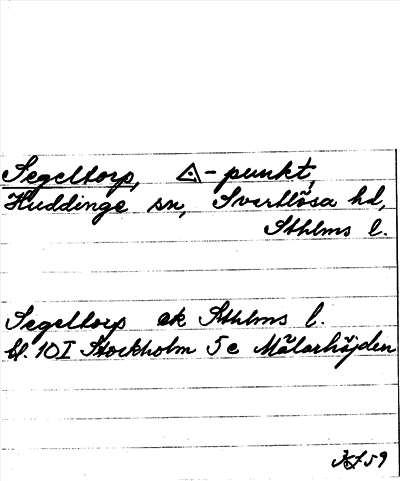 Segeltorp, △-punkt,
Huddinge sn, Svartlösa hd,
Sthlms l.
Segeltorp ek Sthlms l.
bl. 10I Stockholm 5c Mälarhöjden
59